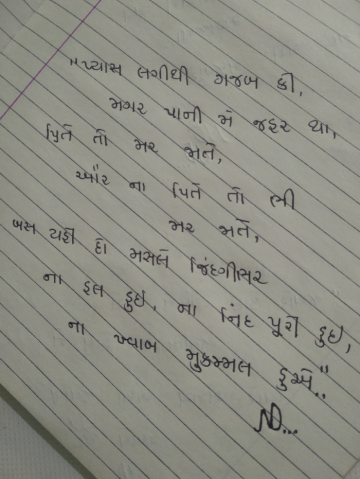 "પ્યાસ લગીથી ગજબ કી,
મગર પાની મે જહર થા,
પિતે તો મર જાતે,
ઔર ના પિતે તો ભી
મર જાતે,
બસ યહી દો મસલે જિંદગીભર
ના હલ હુઇ, ના નિંદ પૂરી હુઇ,
ના ખ્વાબ મુકમ્મલ હુએ"..